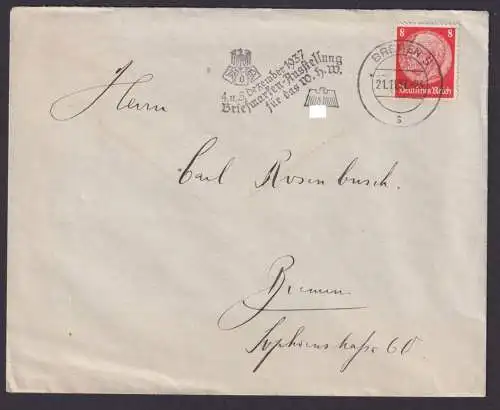 4. u. 5. Dezember 1937
Briefmarken-Ausstellung
für das W.H.W.
BREMEN 5
21.11.
s
8 8
Deutsches Reich
Herrn
Carl Rosenbusch.
Bremen
60